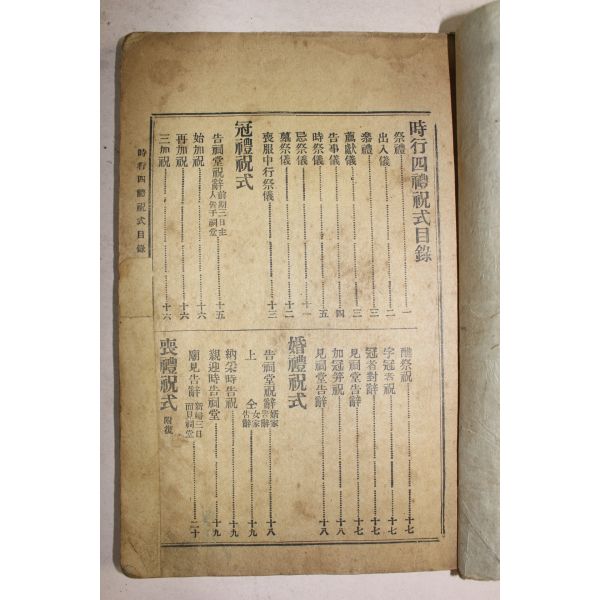 時行四禮祝式目錄
祭禮……一
出入儀……二
參禮……三
薦獻儀……三
告事儀……四
時祭儀……五
忌祭儀……十一
墓祭儀……十二
喪服中行祭儀……十三
冠禮祝式
告祠堂祝辭 前期三日主人告于祠堂……十五
始加祝……十六
再加祝……十六
三加祝……十六
醮祭祝……十七
字冠者祝……十七
冠者對辭……十七
見祠堂告辭……十七
加冠笄祝……十八
見祠堂告辭……十八
婚禮祝式
告祠堂祝辭 婿家告辭……十八
上仝 女家告辭……十九
納采時告祝……十九
親迎時告祠堂……十九
廟見告辭 新婦三日而見祠堂……二十
喪禮祝式 附復
時行四禮祝式目錄